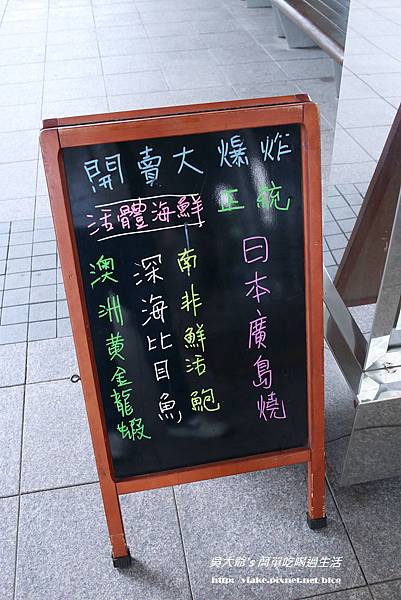 開賣大爆炸
正統
日本廣島燒
活體海鮮
南非鮮活鮑
深海比目魚
澳洲黃金龍蝦
吳大爺's 简單吃喝過生活
http://vtake.pixnet.net/blog